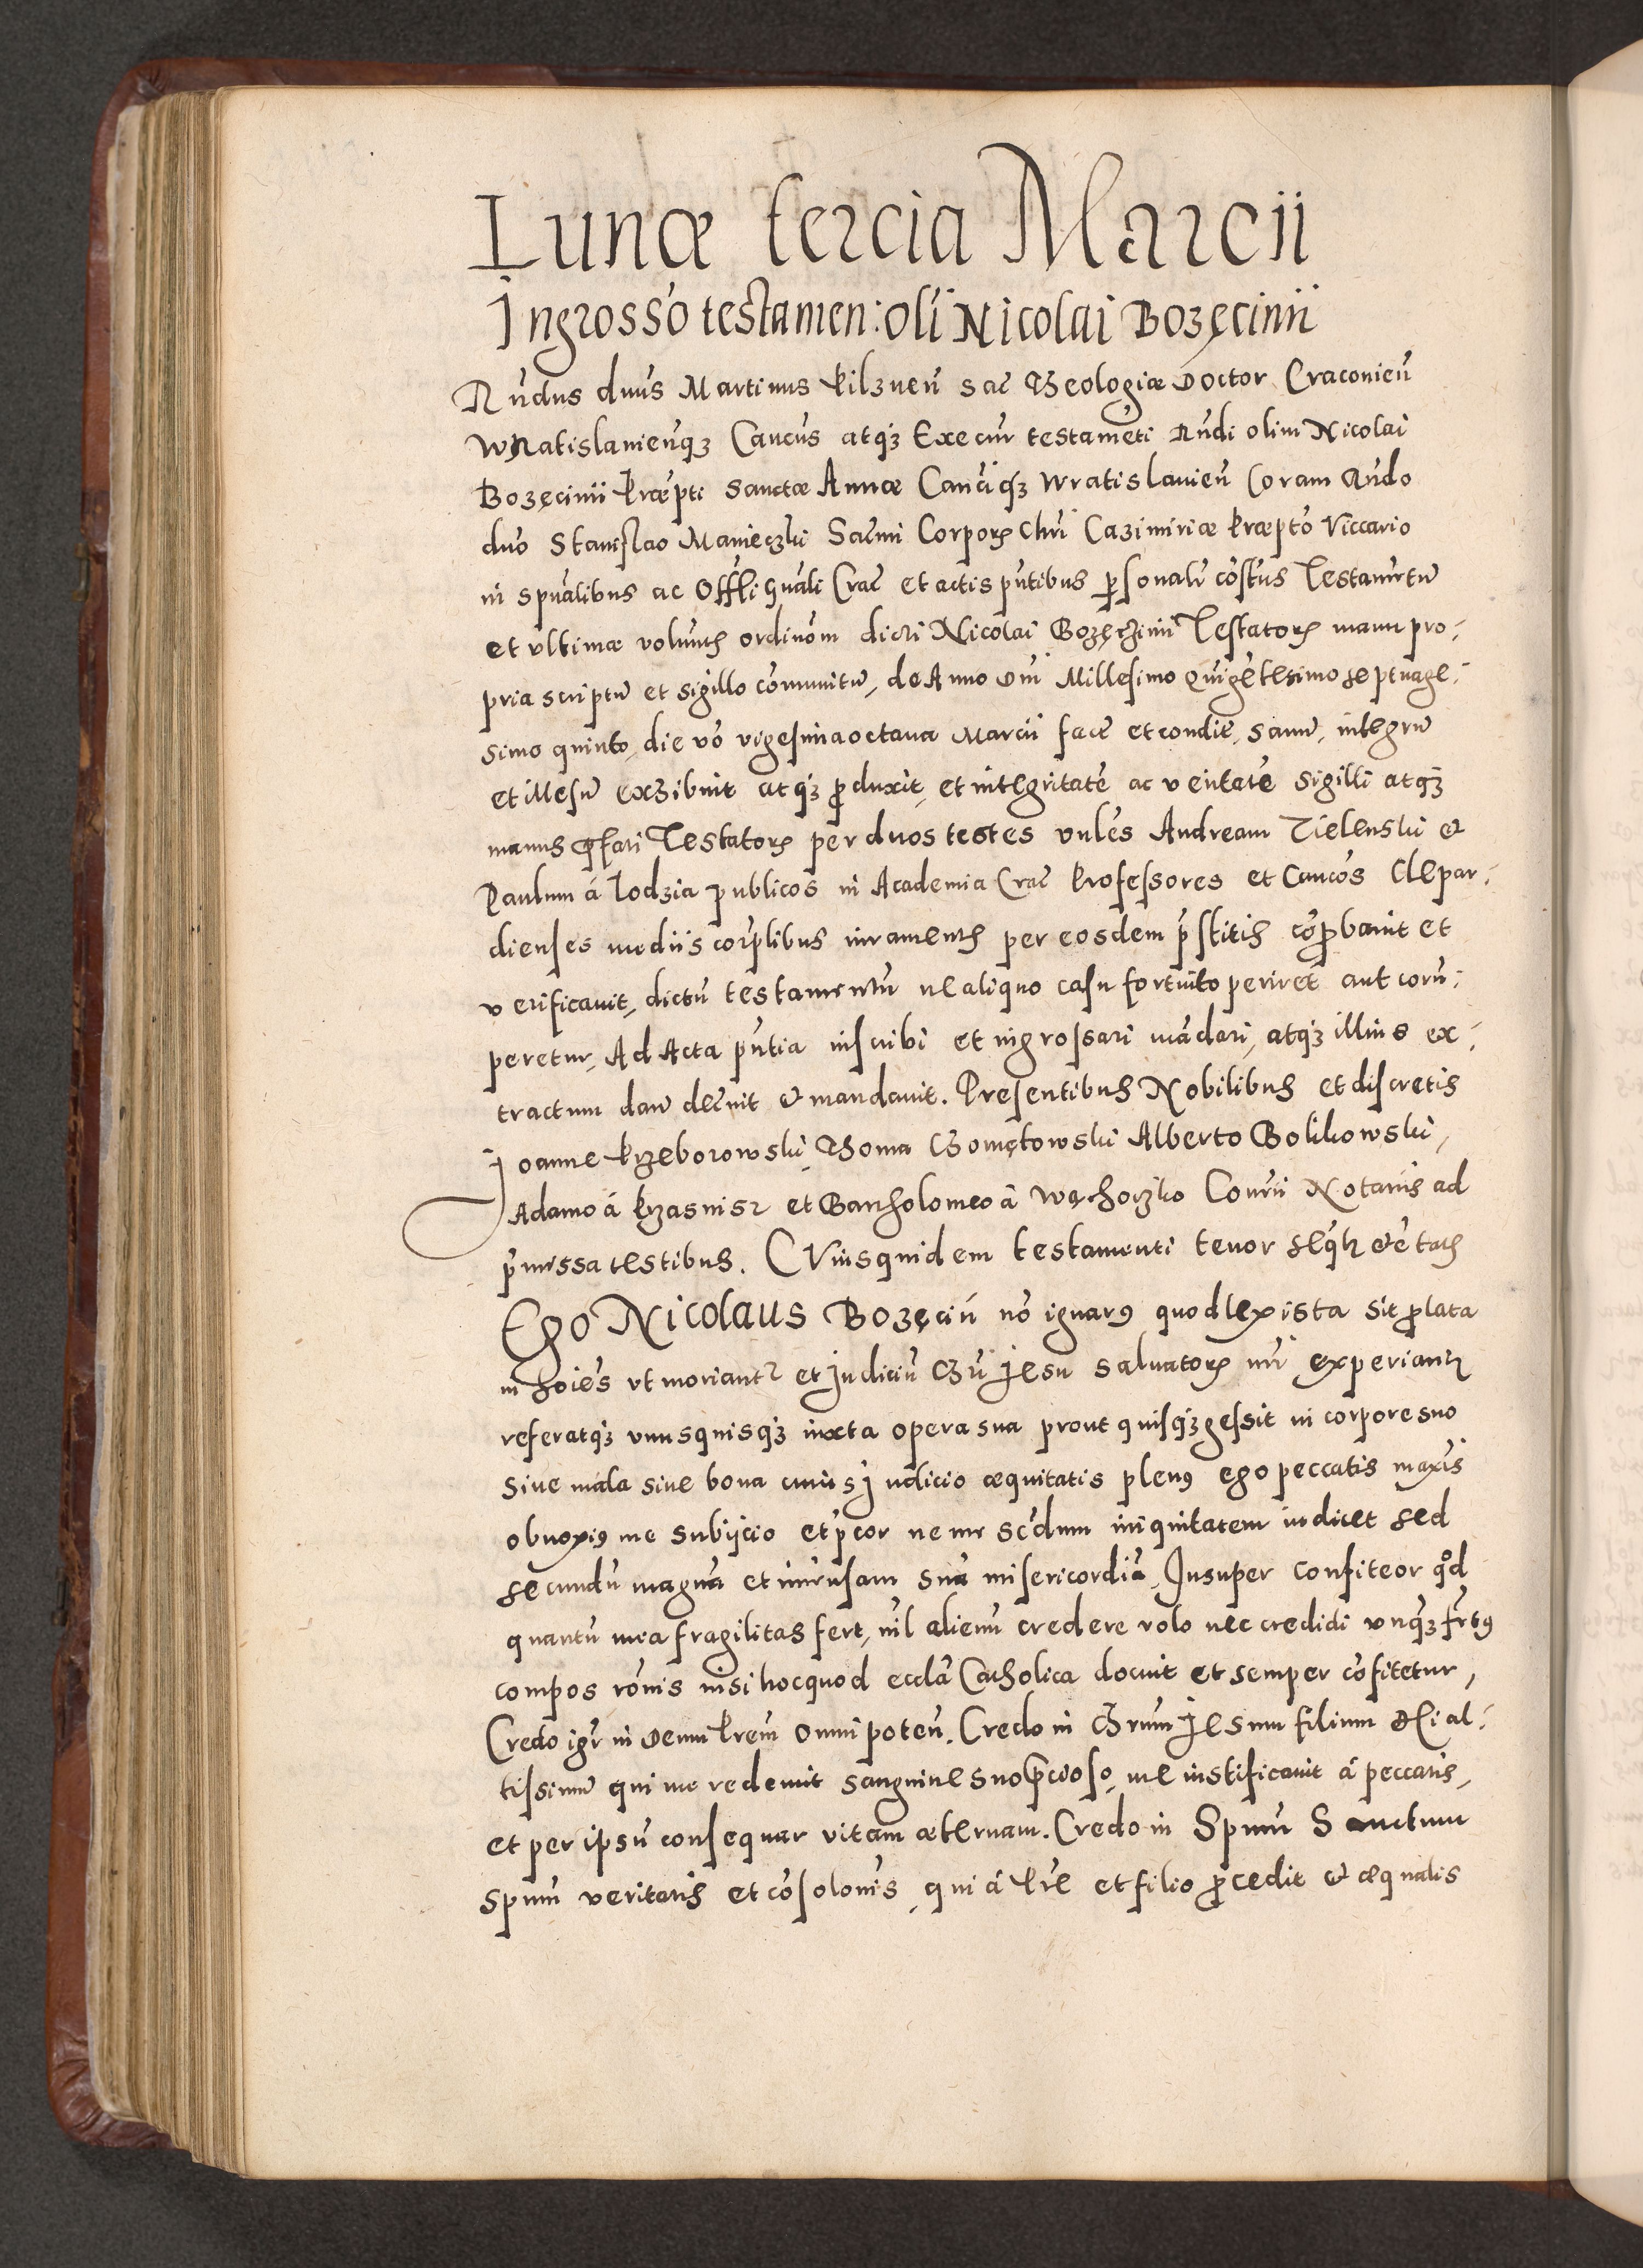 Lunæ tercia Marcii
Ingrosso testamen: oli Nicolai Bozęcinii
Rũdus dnus Martinus Pilznen̄ Sac̄ Theologiæ Doctor Cracovien̄
Wratislavien̄q₃ Cancus atq₃ Execur testamẽti Rũdi olim Nicolai
Bozęcinii Præpti Sanctæ Annæ Canciq₃ Wratislavien̄ Coram Rũdo
dno Stanislao Manieczki Sacmi Corporis Chri Cazimiriæ Præpto Viccario
in spũalibus ac Offli gñali Crac̄ et actis pñtibus psonalr cõstus Testamẽtũ
et ultimæ voluntis ordinom dicti Nicolai Bozęczinii Testatoris manu pro:
pria scriptũ et sigillo cõmunitũ, de Anno Dni Millesimo Quigẽtesimo septuage:
simo quinto, die vo vigesima octava Marcii facĩ et conditĩ, sanũ, integrũ
et illesũ exhibuit atq₃ produxit, et integritatẽ ac veritatẽ sigilli atq₃
manus pfati Testatoris per duos testes vnles Andream Zielenski &
Paulum á Lodzia publicos in Academia Crac̄ Professores et Cancos Clepar:
dienses mediis corplibus iuramentis per eosdem pstitis cõprobavit et
verificavit, dictũ testamentũ ne aliquo casu fortuito periret aut corũ:
peretur, Ad Acta pñtia inscribi et ingrossari mãdari, atq₃ illius ex:
tractum dari decñit & mandavit. Presentibus Nobilibus et discretis
Joanne Przeborowski, Thoma Chomętowski Alberto Bolikowski,
Adamo á Krzasnisz et Bartholomeo á Wąchoczko Consrii Notariis ad
pmissa testibus. Cuiusquidem testamenti tenor sequitur & ẽ talis
Ego Nicolaus Bozęcin̄ nõ ignarus quod lex ista sit plata
in hoiẽs ut moriantur et Judiciũ Chri Jesu Salvatoris nri experiantur
referatq₃ unusquisq₃ iuxta opera sua prout quisq₃ gessit in corpore suo
Sive mala sive bona cuius Judicio æquitatis plenus ego peccatis maxis
obnoxius me subijcio et pcor ne me scdum iniquitatem iudicet sed
secundũ magnã et immensam suã misericordiã, Insuper confiteor qd
quantũ mea fragilitas fert, nil alienũ credere volo nec credidi unq₃ fretus
compos rõnis nisi hoc quod eccla Catholica docuit et semper cõfitetur,
Credo igr in Deum Prem Omnipoten̄. Credo in Chrum Jesum filium Dei al:
tissimũ qui me redemit sanguine suo pcioso, me iustificavit á peccatis,
et per ipsũ consequar vitam æternam. Credo in Spum Sanctum
Spum veritatis et cõsolonis, qui á Pre et filio procedit & æqualis